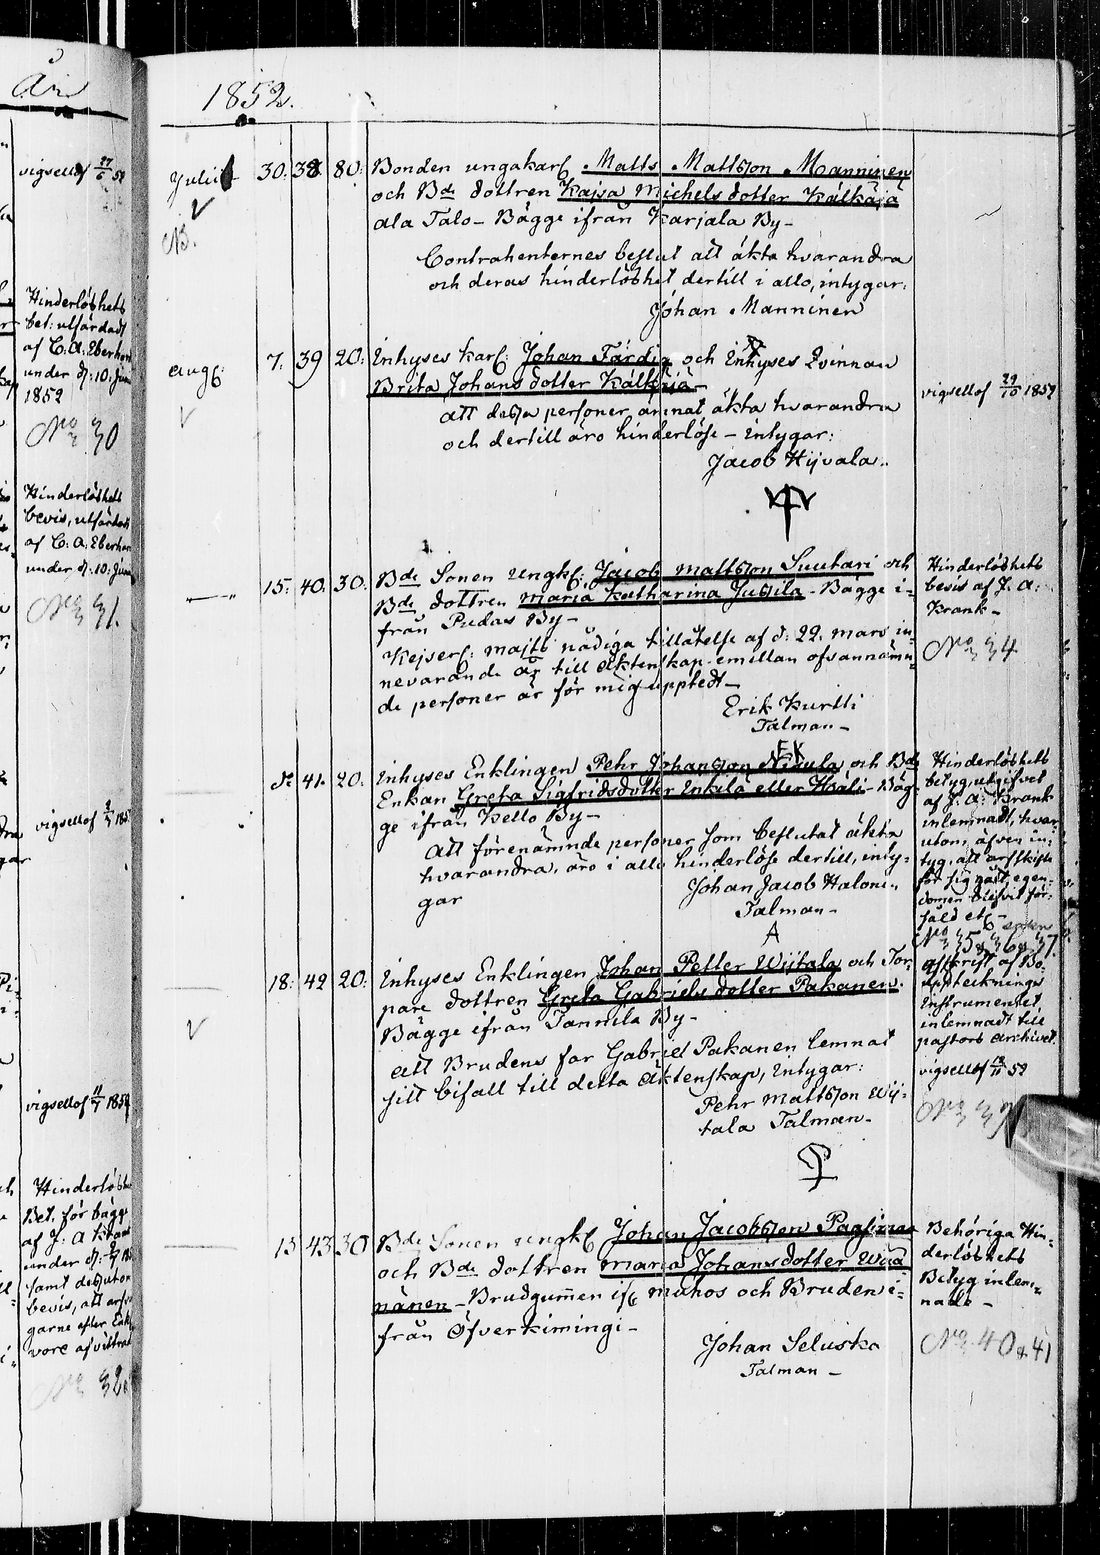 År
vigsell af 27/6 52
Hinderlöshets
bet: utfärdadt
af C. A. Eberhar
under d: 10: Jun
1852
No 30
Hinderlöshets
bevis, utfärdadt
af C: A: Eberhar
under d: 10: Jun
No 31.
vigsell af
vigsell af 4/7 1852
Hinderlöshe
Bet. för bägge
af J. A Krank
under d:
samt
bevis, att arfvin
garne efter Enk
vore afvittrad
No 32.
1852.
Julii 30. 38 80. Bonden ungakarl Matts Mattsson Manninen
och Bde dottren Kajsa Michels dotter Kälkäjä
ala Talo - Bägge ifrån Karjala By -
NB.
Contrahenternes beslut att äkta hvarandra
och deras hinderlöshet dertill i allo, intygar:
Johan Manninen
Aug: 7. 39 20. Inhyses karl: Johan Färdig och Inhyses Qvinnan
Brita Johans dotter Kälkäjä -
vigsell af 29/10 1852
att dessa personer ämnat äkta hvarandra
och dertill äro hinderlöse - intygar:
Jacob Hyvala..
15. 40. 30. Bde Sonen ungkl: Jacob Mattsson Suutari och
Bde dottren Maria Katharina Jussila - Bägge i-
från Pudas By -
Hinderlöshets
bevis af J. A:
Krank -
No 34
Kejserl: Majts nådiga tillåtelse af d: 22. Mars in-
nevarande år till äktenskap emillan ofvannämn-
de personer är för mig uppteedt -
Erik Kurtti
Talman -
EK
de 41. 20. Inhyses Enklingen Pehr Johansson Nigula och Bde
Enkan Greta Sigfridsdotter Enkilä eller Hväli - Bäg-
ge ifrån Kello By -
att förenämnde personer som beslutat äkta
hvarandra, äro i allo hinderlöse dertill, inty-
gar
Johan Jacob Halone..
Talman -
A
Hinderlöshets
betyg, utgifvet
af J. A. Krank
inlemnadt, hvar-
utom, äfven in-
tyg, att arfskifte
för sig gått, egen-
domen blifvit för-
såld etc -
No 35 & 36 & 37
18: 42 20: Inhyses Enklingen Johan Petter Wiitala och Tor-
pare dottren Greta Gabriels dotter Pakanen.
Bägge ifrån Tannila By -
att Brudens far Gabriel Pakanen lemnat
sitt bifall till detta äktenskap, Intygar:
Pehr Mattsson Wii-
tala Talman -
Afskrift af Bo-
uppteckning
Instrumentet
inlemnadt till
pastors archivet.
vigsell af 52
No
15 43 30 Bde Sonen ungkl Johan Jacobsson Pagsinen
och Bde dottren Maria Johans dotter Wää
nänen - Brudgumen ifr Muhos och Bruden i-
från Öfverkimingi -
Johan Seluska
Talman -
Behöriga Hin-
derlöshets
Betyg inlem-
nade -
No 40 & 41